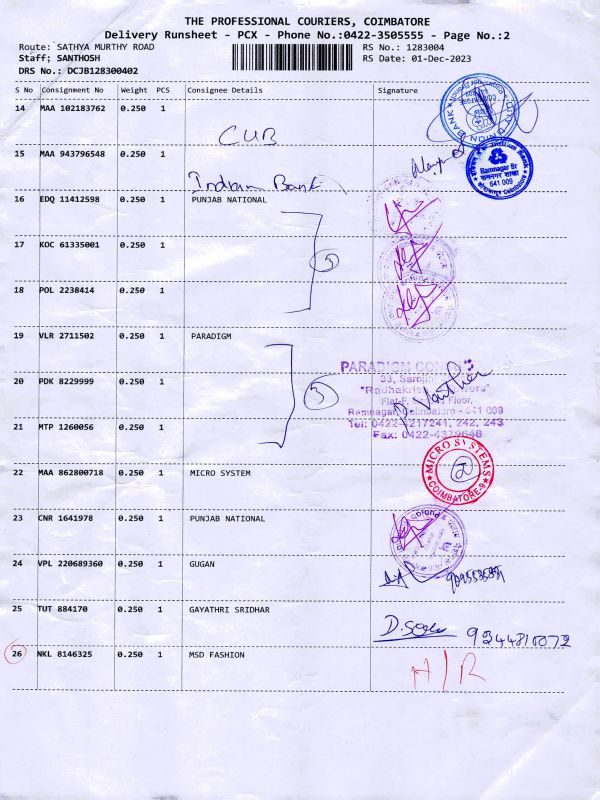 THE PROFESSIONAL COURIERS, COIMBATORE
Delivery Runsheet - PCX - Phone No.:0422-3505555 - Page No.:2
Route: SATHYA MURTHY ROAD RS No.: 1283004
Staff: SANTHOSH RS Date: 01-Dec-2023
DRS No.: DCJB128300402
S No Consignment No Weight PCS Consignee Details Signature
14 MAA 102183762 0.250 1
CUB
15 MAA 943796548 0.250 1
Indian Bank
Indian Bank
Ramnagar Br
641 009
Coimbatore
16 EDQ 11412598 0.250 1 PUNJAB NATIONAL
17 KOC 61335001 0.250 1
3
18 POL 2238414 0.250 1
19 VLR 2711502 0.250 1 PARADIGM
PARADIGM
33, Saroj
20 PDK 8229999 0.250 1
3
Floor,
Ramnagar, Coimbatore - 641 009
Tel: 0422-4217241, 242, 243
Fax: 0422-4379648
21 MTP 1260056 0.250 1
22 MAA 862800718 0.250 1 MICRO SYSTEM
MICRO SYSTEMS
COIMBATORE-9
23 CNR 1641978 0.250 1 PUNJAB NATIONAL
24 VPL 220689360 0.250 1 GUGAN
25 TUT 884170 0.250 1 GAYATHRI SRIDHAR
26 NKL 8146325 0.250 1 MSD FASHION
H/R